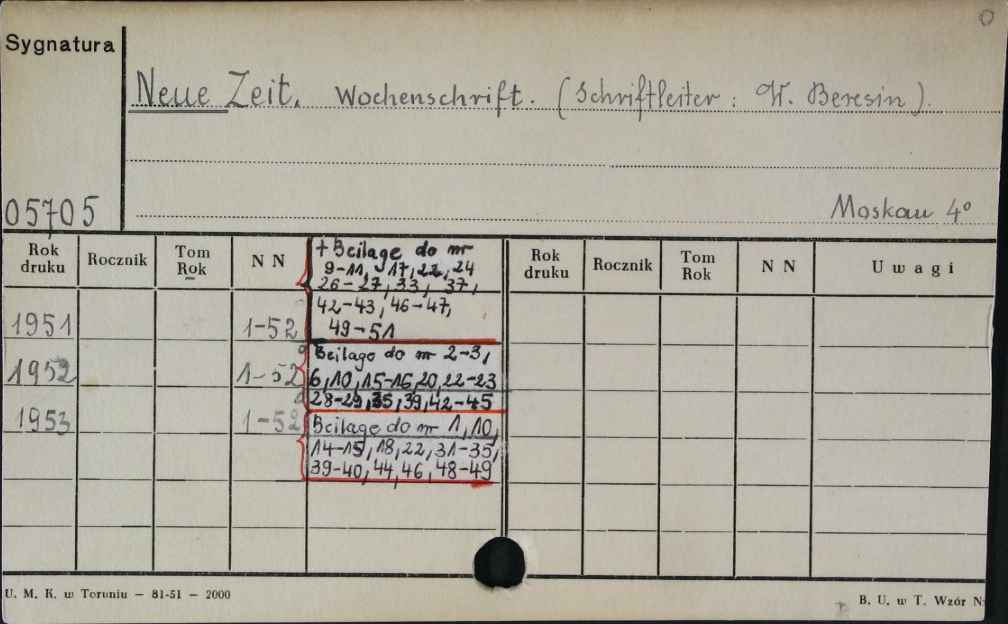 O
Sygnatura
Neue Zeit. Wochenschrift. (Schriftleiter: W. Beresin).
05705
Moskau 4°
Rok druku Rocznik Tom Rok N N
+ Beilage do nr
9-11, 17, 22, 24
26-27, 33, 37,
42-43, 46-47,
49-51
Rok druku Rocznik Tom Rok N N Uwagi
1951 1-52
1952 1-52
Beilage do nr 2-3,
6, 10, 15-16, 20, 22-23
28-29, 35, 39, 42-45
1953 1-52
Beilage do nr 1, 10,
14-15, 18, 22, 31-35,
39-40, 44, 46, 48-49
U. M. K. w Toruniu — 81-51 — 2000
B. U. w T. Wzór